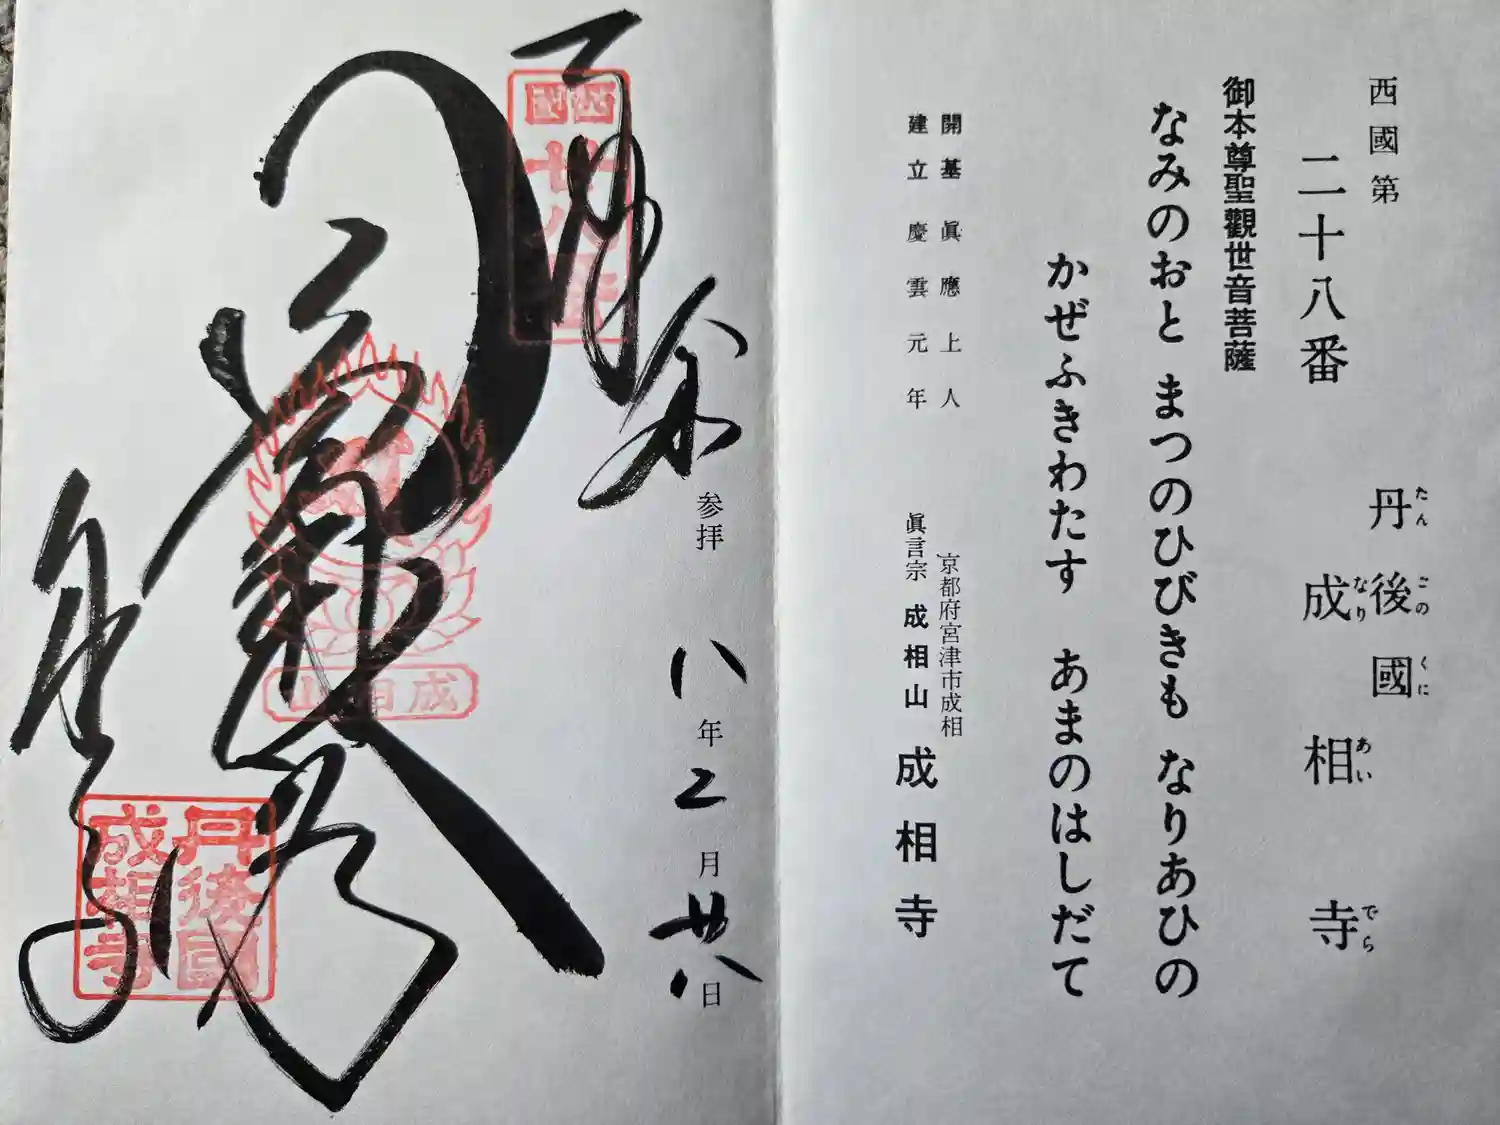 西國第
二十八番
丹後國
たんごのくに
成相寺
なりあいでら
御本尊聖觀世音菩薩
なみのおと まつのひびきも なりあひの
かぜふきわたす あまのはしだて
開基 眞應上人
建立慶雲元年
京都府宮津市成相
眞言宗 成相山 成相寺
奉
参拝
八年二月廿八日
西國
廿八番
成相山
丹後國
成相寺